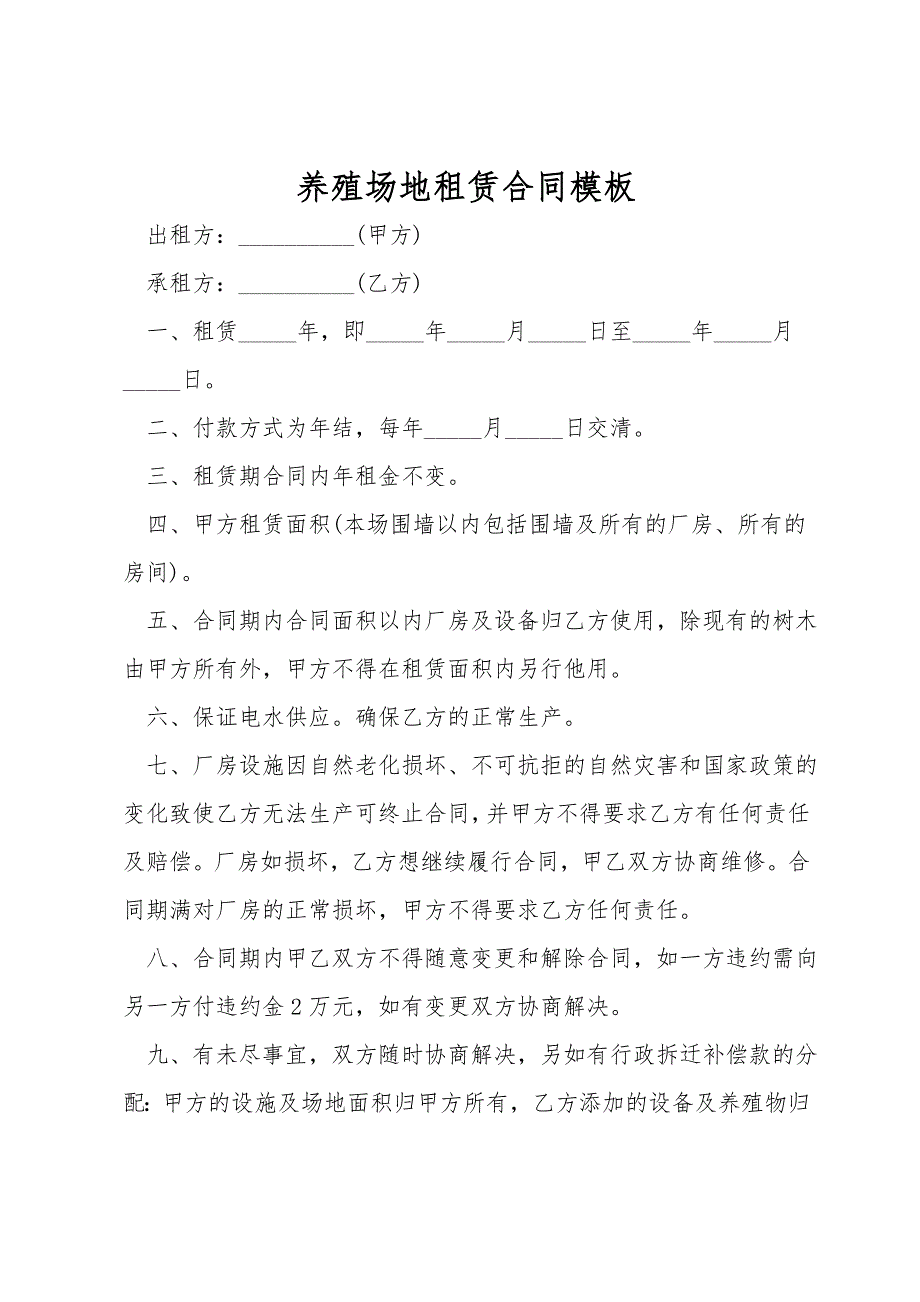 养殖场地租赁合同模板
出租方：__________(甲方)
承租方：__________(乙方)
一、租赁_____年，即_____年_____月_____日至_____年_____月
_____日。
二、付款方式为年结，每年_____月_____日交清。
三、租赁期合同内年租金不变。
四、甲方租赁面积(本场围墙以内包括围墙及所有的厂房、所有的
房间)。
五、合同期内合同面积以内厂房及设备归乙方使用，除现有的树木
由甲方所有外，甲方不得在租赁面积内另行他用。
六、保证电水供应。确保乙方的正常生产。
七、厂房设施因自然老化损坏、不可抗拒的自然灾害和国家政策的
变化致使乙方无法生产可终止合同，并甲方不得要求乙方有任何责任
及赔偿。厂房如损坏，乙方想继续履行合同，甲乙双方协商维修。合
同期满对厂房的正常损坏，甲方不得要求乙方任何责任。
八、合同期内甲乙双方不得随意变更和解除合同，如一方违约需向
另一方付违约金2万元，如有变更双方协商解决。
九、有未尽事宜，双方随时协商解决，另如有行政拆迁补偿款的分
配：甲方的设施及场地面积归甲方所有，乙方添加的设备及养殖物归